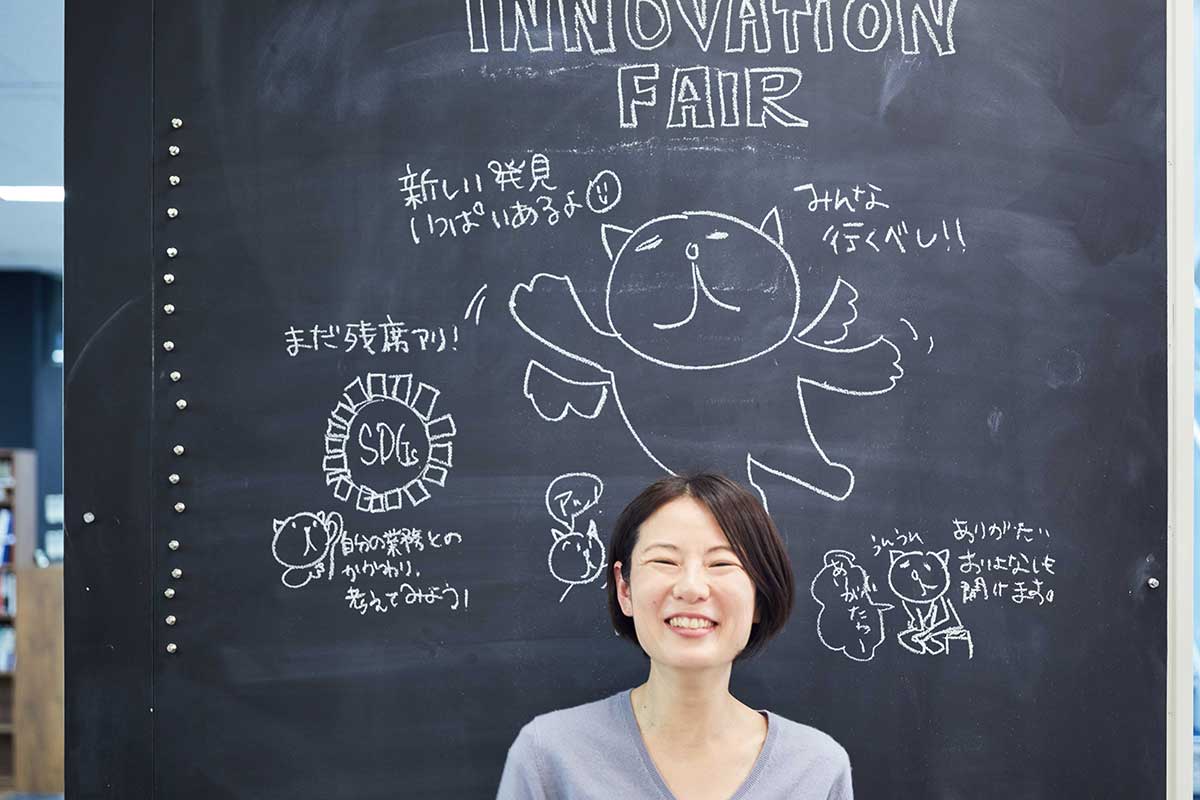 INNOVATION
FAIR
新しい発見
いっぱいあるよ
みんな
行くべし!!
まだ残席アリ!
SDGs
自分の業務との
かかわり、
考えてみよう!
アハ
うんうん
ありがたい
おはなしも
聞けます。
ありがたやー